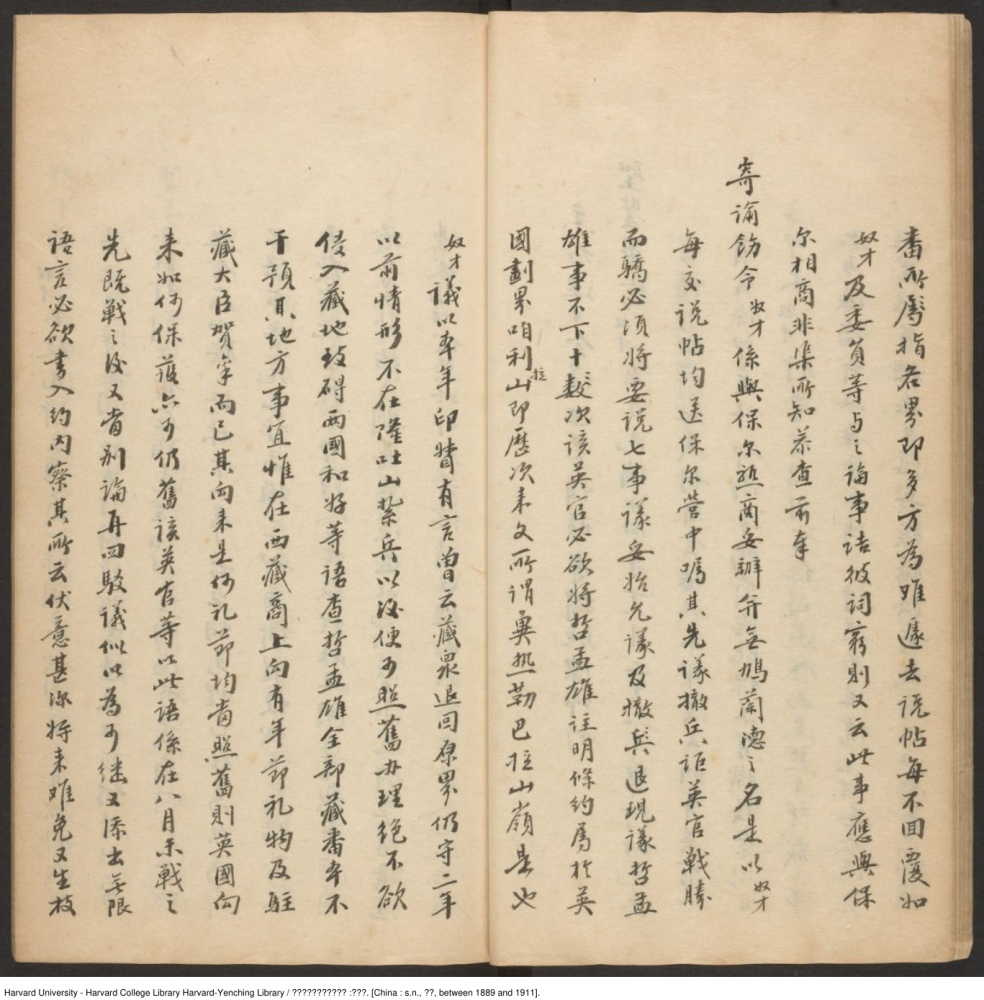 番所屬指名界即多方為难遽去说帖每不回覆如
奴才及委員等与之論事詰彼词窮則又云此事應與保
尔相商非渠所知恭查前奉
寄諭飭令奴才係與保尔熟商妥辦并無鳩蘭德之名是以奴才
每交说帖均送保尔营中嘱其先議撤兵詎英官戰勝
而驕必须将要说七事議妥始允議及撤兵退現議哲孟
雄事不下十数次该英官必欲将哲孟雄注明條约属於英
國劃界咱利拉山即歷次来文所谓巽热勒巴拉山嶺是也
奴才議以本年印牘有言曾云藏衆退回原界仍守二年
以前情形不在隆吐山紮兵以後便可照舊办理绝不欲
侵入藏地致碍两國和好等语查哲孟雄全部藏番本不
干預其地方事宜惟在西藏商上向有年節礼物及駐
藏大臣賀禀而已其向来是何礼節均当照舊則英國向
来如何保護亦可仍舊该英官等以此语係在八月未戰之
先既戰之後又当别論再四駁議似以為可继又添出無限
语言必欲書入约内察其所云伏意甚深将来难免又生枝
Harvard University - Harvard College Library Harvard-Yenching Library / ??????????? :???. [China : s.n., ??, between 1889 and 1911].